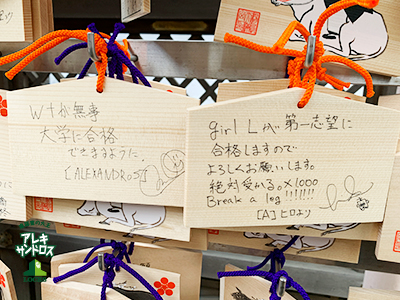 Wナが無事
大学に合格
できますように.
[ALEXANDROS]
girl Lが第一志望に
合格しますので
よろしくお願いします。
絶対受かる。×1000
Break a leg !!!!!!!
[A]ヒロより
アレキ
サンドロス